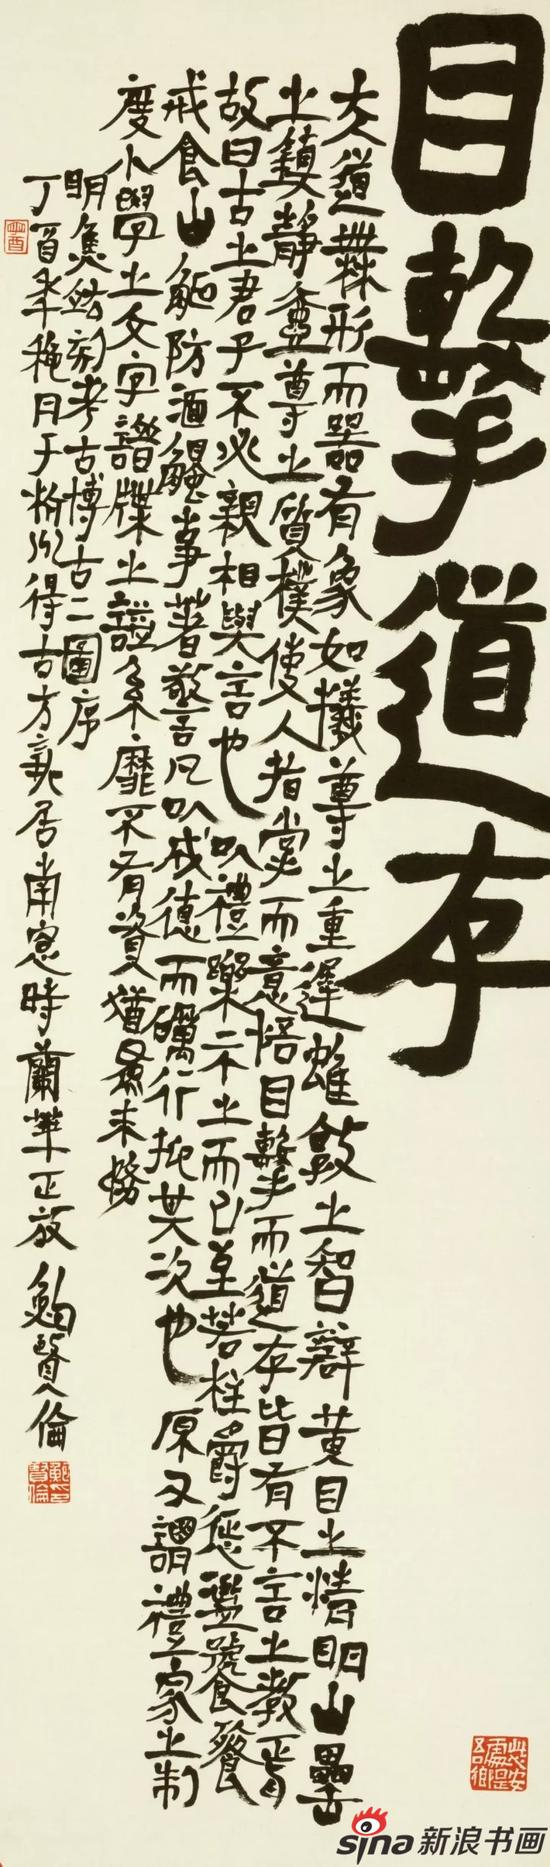 目擊道存
夫道無形而器有象如犧尊之重遲蜼敦之智辯黃目之精明山罍
之鎮靜壺尊之質樸使人指掌而意悟目擊而道存皆有不言之教焉
故曰古之君子不必親相與言也以禮樂示之而已至若柱爵懲濫饕餮
戒食山觚防湎事著警言凡以成德而礪行抑其次也原又謂禮家之制
度小學之文字譜牒之證系靡不有資猶最末務
明焦竑刻考古博古二圖序
丁酉年穐月于得古方居南窗時蘭華正放鮑賢倫
sina新浪书画